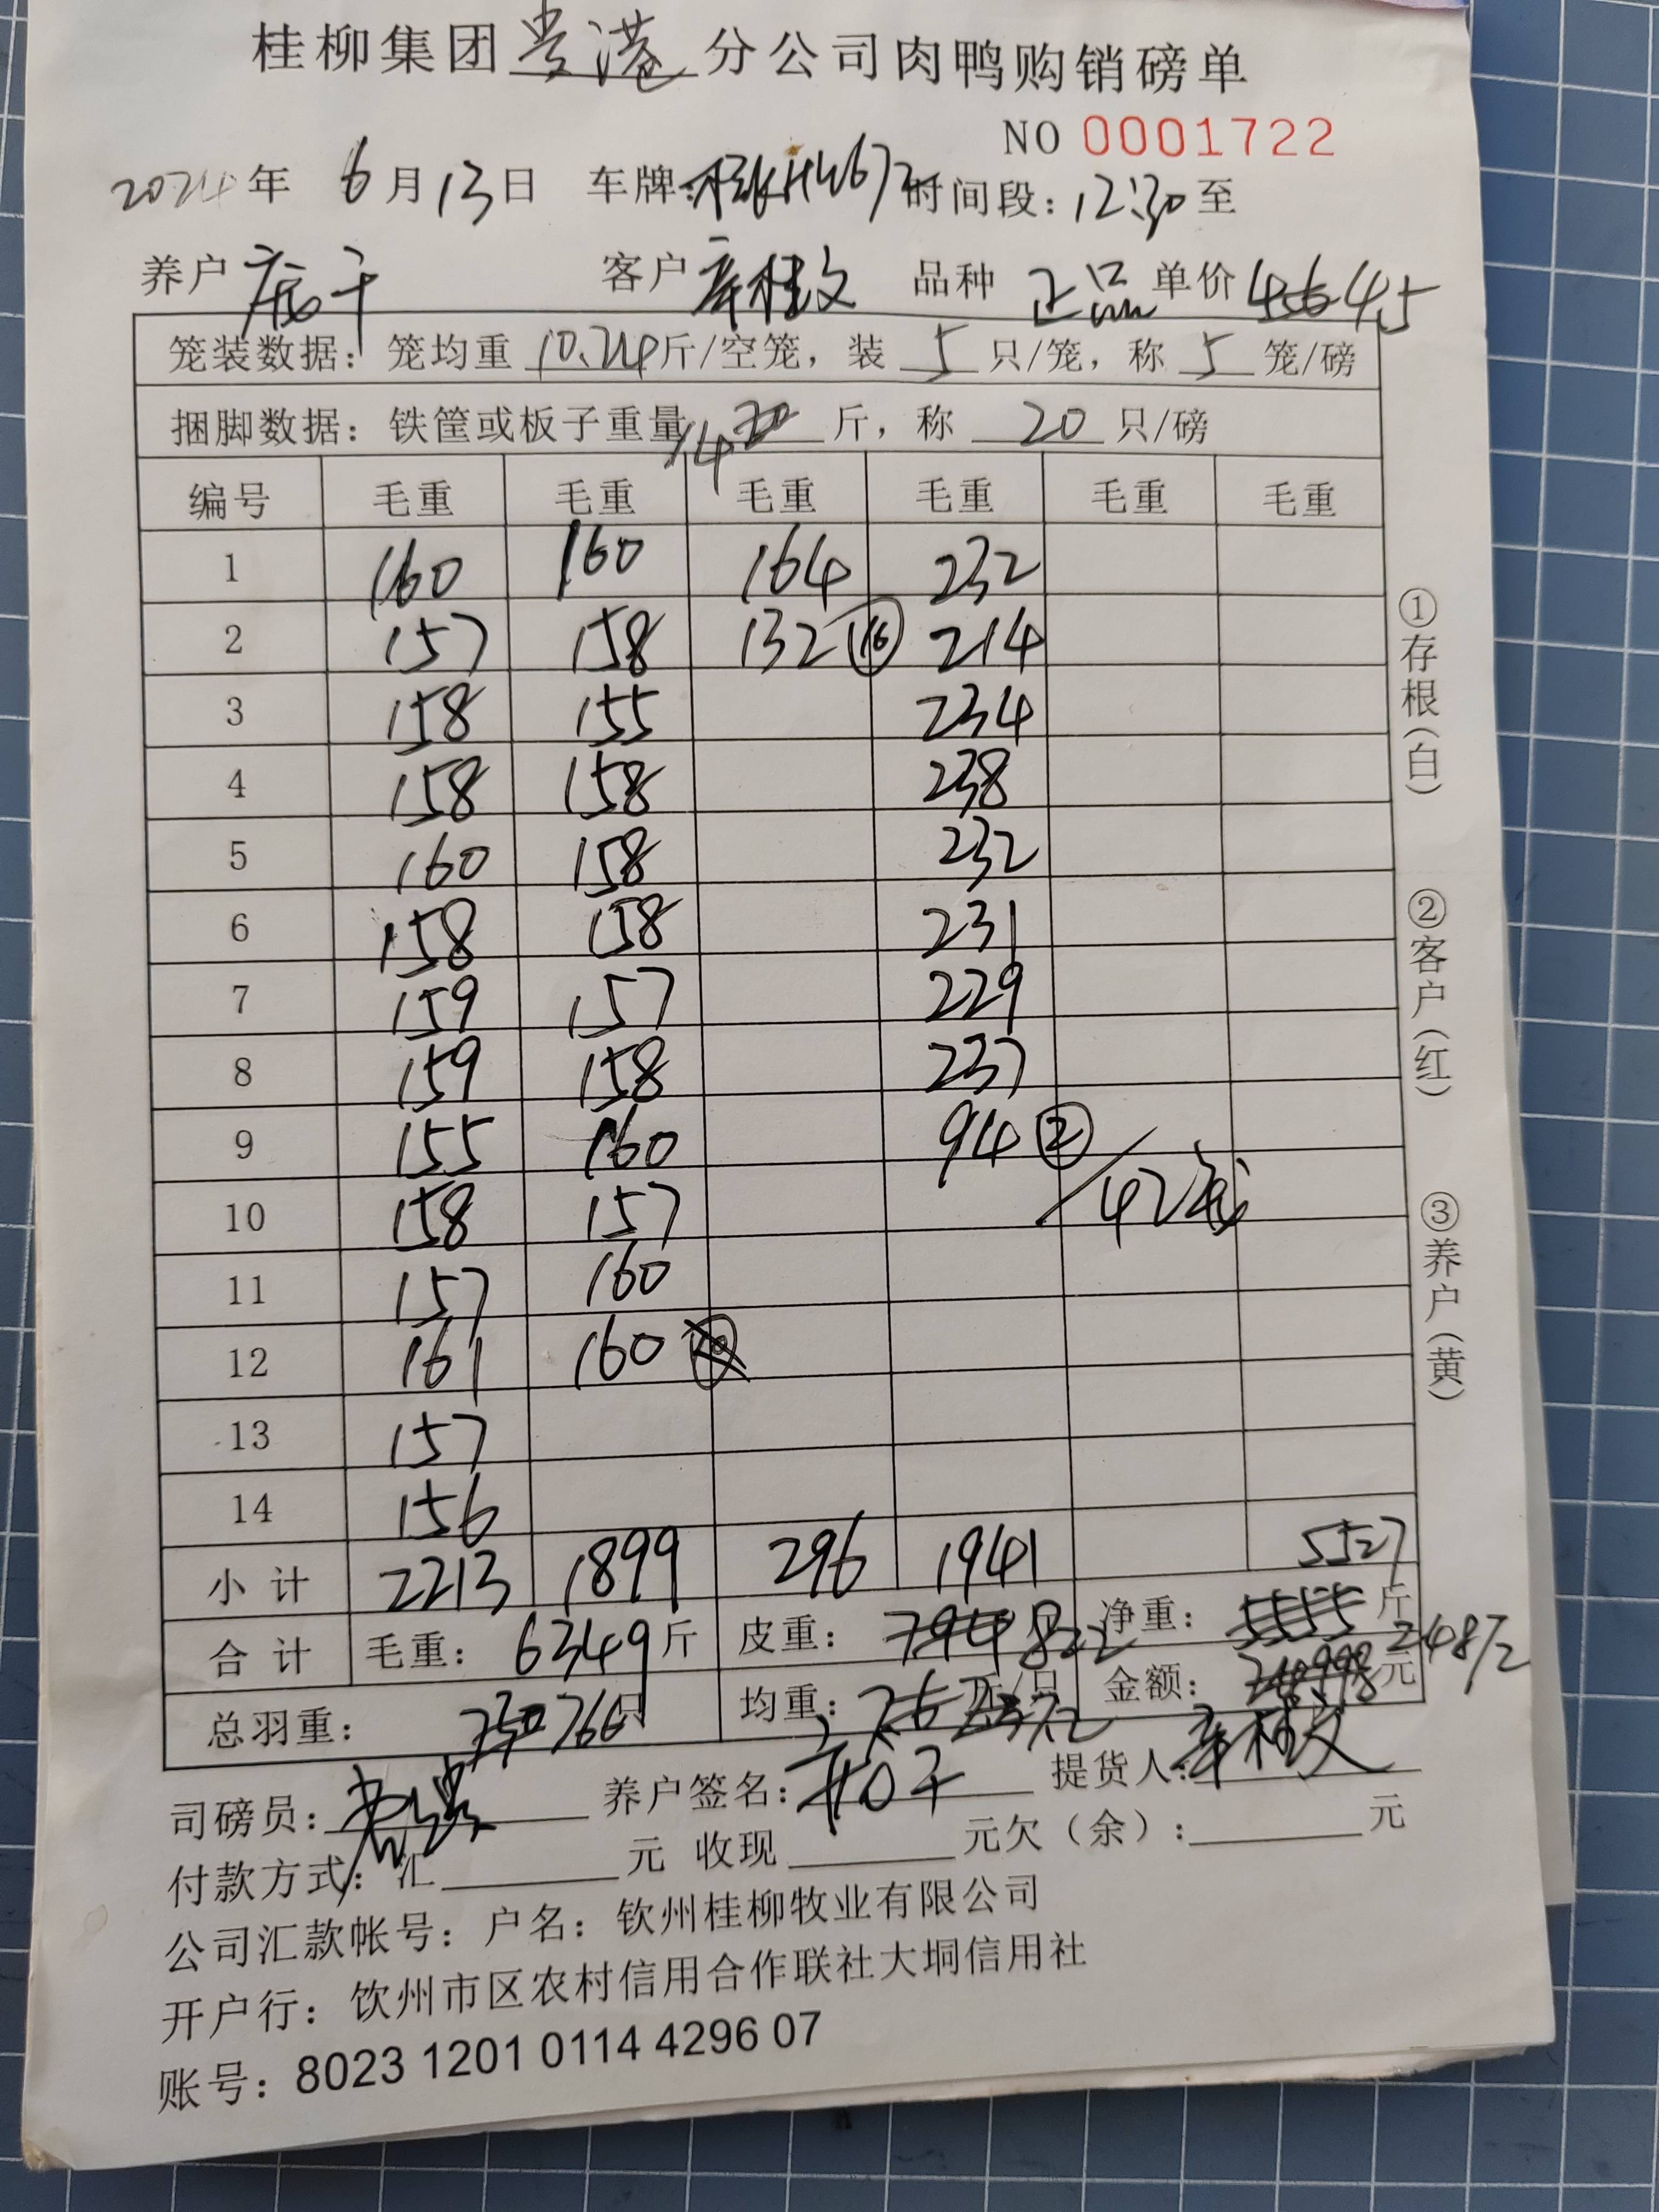 桂柳集团贵港分公司肉鸭购销磅单
NO 0001722
2024年 6月13日 车牌: 时间段:12:30至
养户 客户 辛桂文 品种 正品 单价 4.5
笼装数据: 笼均重 10.24斤/空笼, 装 5 只/笼, 称 5 笼/磅
捆脚数据: 铁筐或板子重量 14 斤, 称 20 只/磅
编号 毛重 毛重 毛重 毛重 毛重 毛重
1 160 160 164 232
2 157 158 132 ⑯ 214
3 158 155 234
4 158 158 238
5 160 158 232
6 158 158 231
7 159 157 229
8 159 158 237
9 155 160 94 ②
10 158 157 /42笼
11 157 160
12 161 160
13 157
14 156
小计 2213 1899 296 1941 5527
合计 毛重: 6349斤 皮重: 822 净重: 5555 斤
总羽重: 750 766只 均重: 斤/只 金额: 元 24872
司磅员: 养户签名: 提货人: 辛桂文
付款方式: 汇 元 收现 元欠(余): 元
公司汇款帐号: 户名: 钦州桂柳牧业有限公司
开户行: 饮州市区农村信用合作联社大垌信用社
账号: 8023 1201 0114 4296 07
①存根(白)
②客户(红)
③养户(黄)